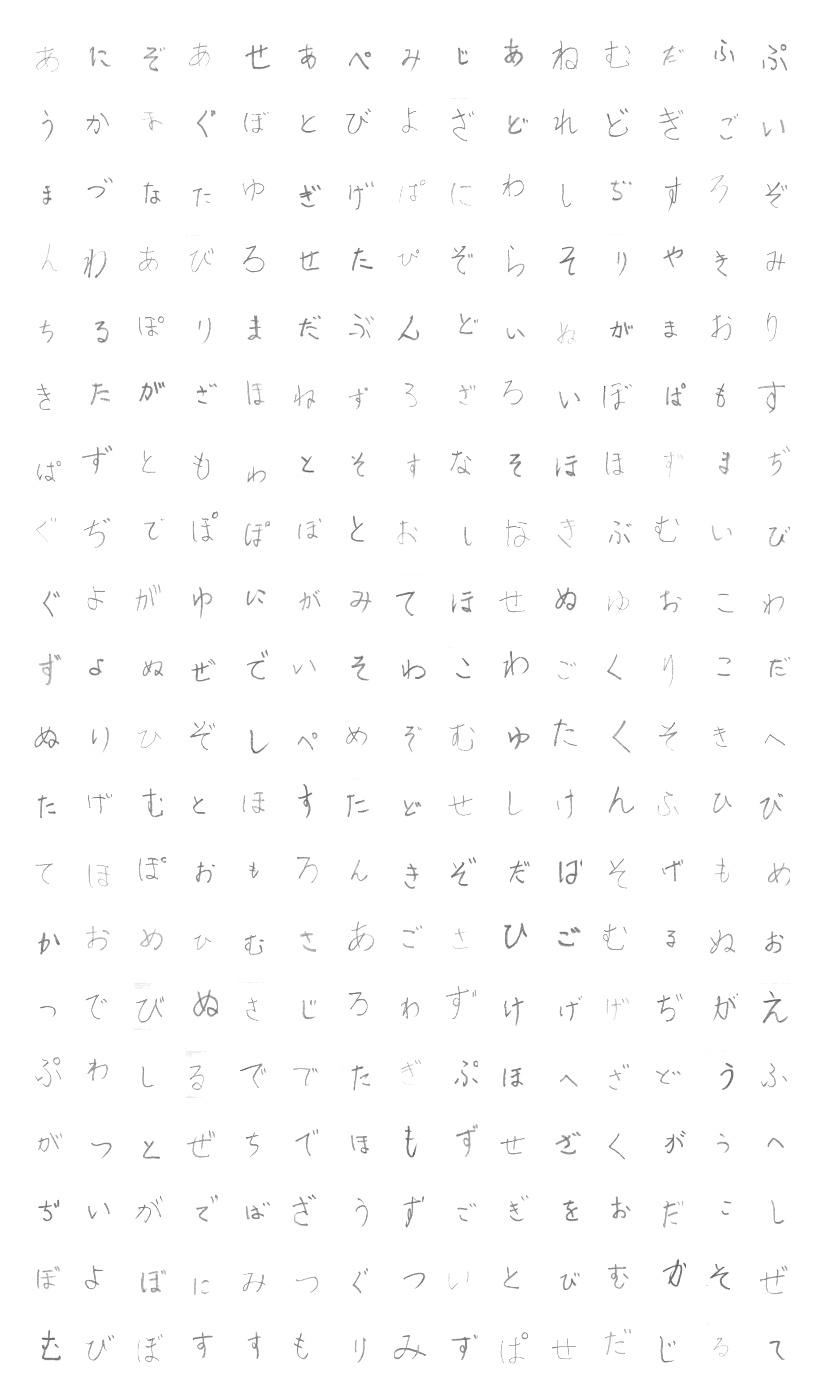 あにぞあせあぺみじあねむだふぷ
うかまぐぼとびよざどれどぎごい
まづなたゆぎげぱにわしぢすろぞ
んわあびろせたぴぞらそりやきみ
ちるぽりまだぶんどいぬがまおり
きたがざほねずろざろいぼぱもす
ぱずともわとそすなそほほずまぢ
ぐぢでぽぽぼとおしなきぶむいび
ぐよがゆにがみてほせぬゆおこわ
ずよぬぜでいそわこわごくりこだ
ぬりひぞしぺめぞむゆたくそきへ
たげむとほすたどせしけんふひび
てほぽおもろんきぞだばそげもめ
かおめひむさあごさひごむるぬお
つでびぬさじろわずけげげぢがえ
ぷわしるででたぎぷほへざどうふ
がつとぜちでほもずせざくがうへ
ぢいがでばざうずごぎをおだこし
ぼよぼにみつぐついとびむかそぜ
むびぼすすもりみずぱせだじるて